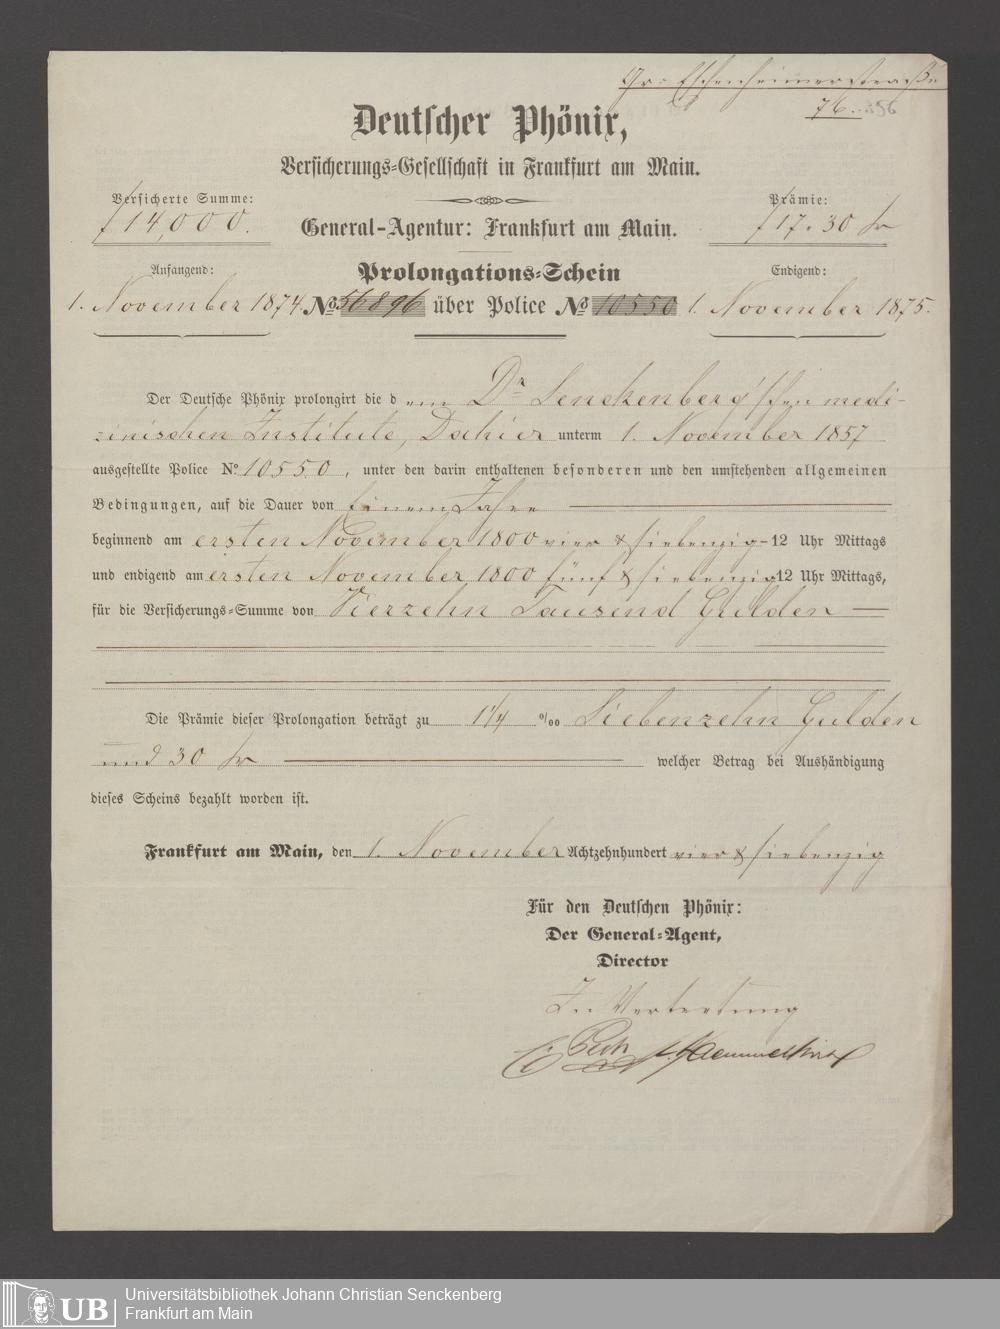 Gr: Eschenheimerstraße
76. 356
Deutscher Phönix,
Versicherungs-Gesellschaft in Frankfurt am Main.
Versicherte Summe:
f 14,000.
General-Agentur: Frankfurt am Main.
Prämie:
f 17. 30 kr
Anfangend:
1. November 1874.
Prolongations-Schein
No. 56896 über Police No. 10550
Endigend:
1. November 1875.
Der Deutsche Phönix prolongirt die dem Dr Senckenberg'schen medi-
zinischen Institute, Dahier unterm 1. November 1857
ausgestellte Police No. 10550, unter den darin enthaltenen besonderen und den umstehenden allgemeinen
Bedingungen, auf die Dauer von Einem Jahre
beginnend am ersten November 1800 vier & siebenzig - 12 Uhr Mittags
und endigend am ersten November 1800 fünf & siebenzig 12 Uhr Mittags,
für die Versicherungs-Summe von Vierzehn Tausend Gulden
Die Prämie dieser Prolongation beträgt zu 1 1/4 ‰ Siebenzehn Gulden
und 30 kr welcher Betrag bei Aushändigung
dieses Scheins bezahlt worden ist.
Frankfurt am Main, den 1. November Achtzehnhundert vier & siebenzig
Für den Deutschen Phönix:
Der General-Agent,
Director
In Vertretung
UB
Universitätsbibliothek Johann Christian Senckenberg
Frankfurt am Main